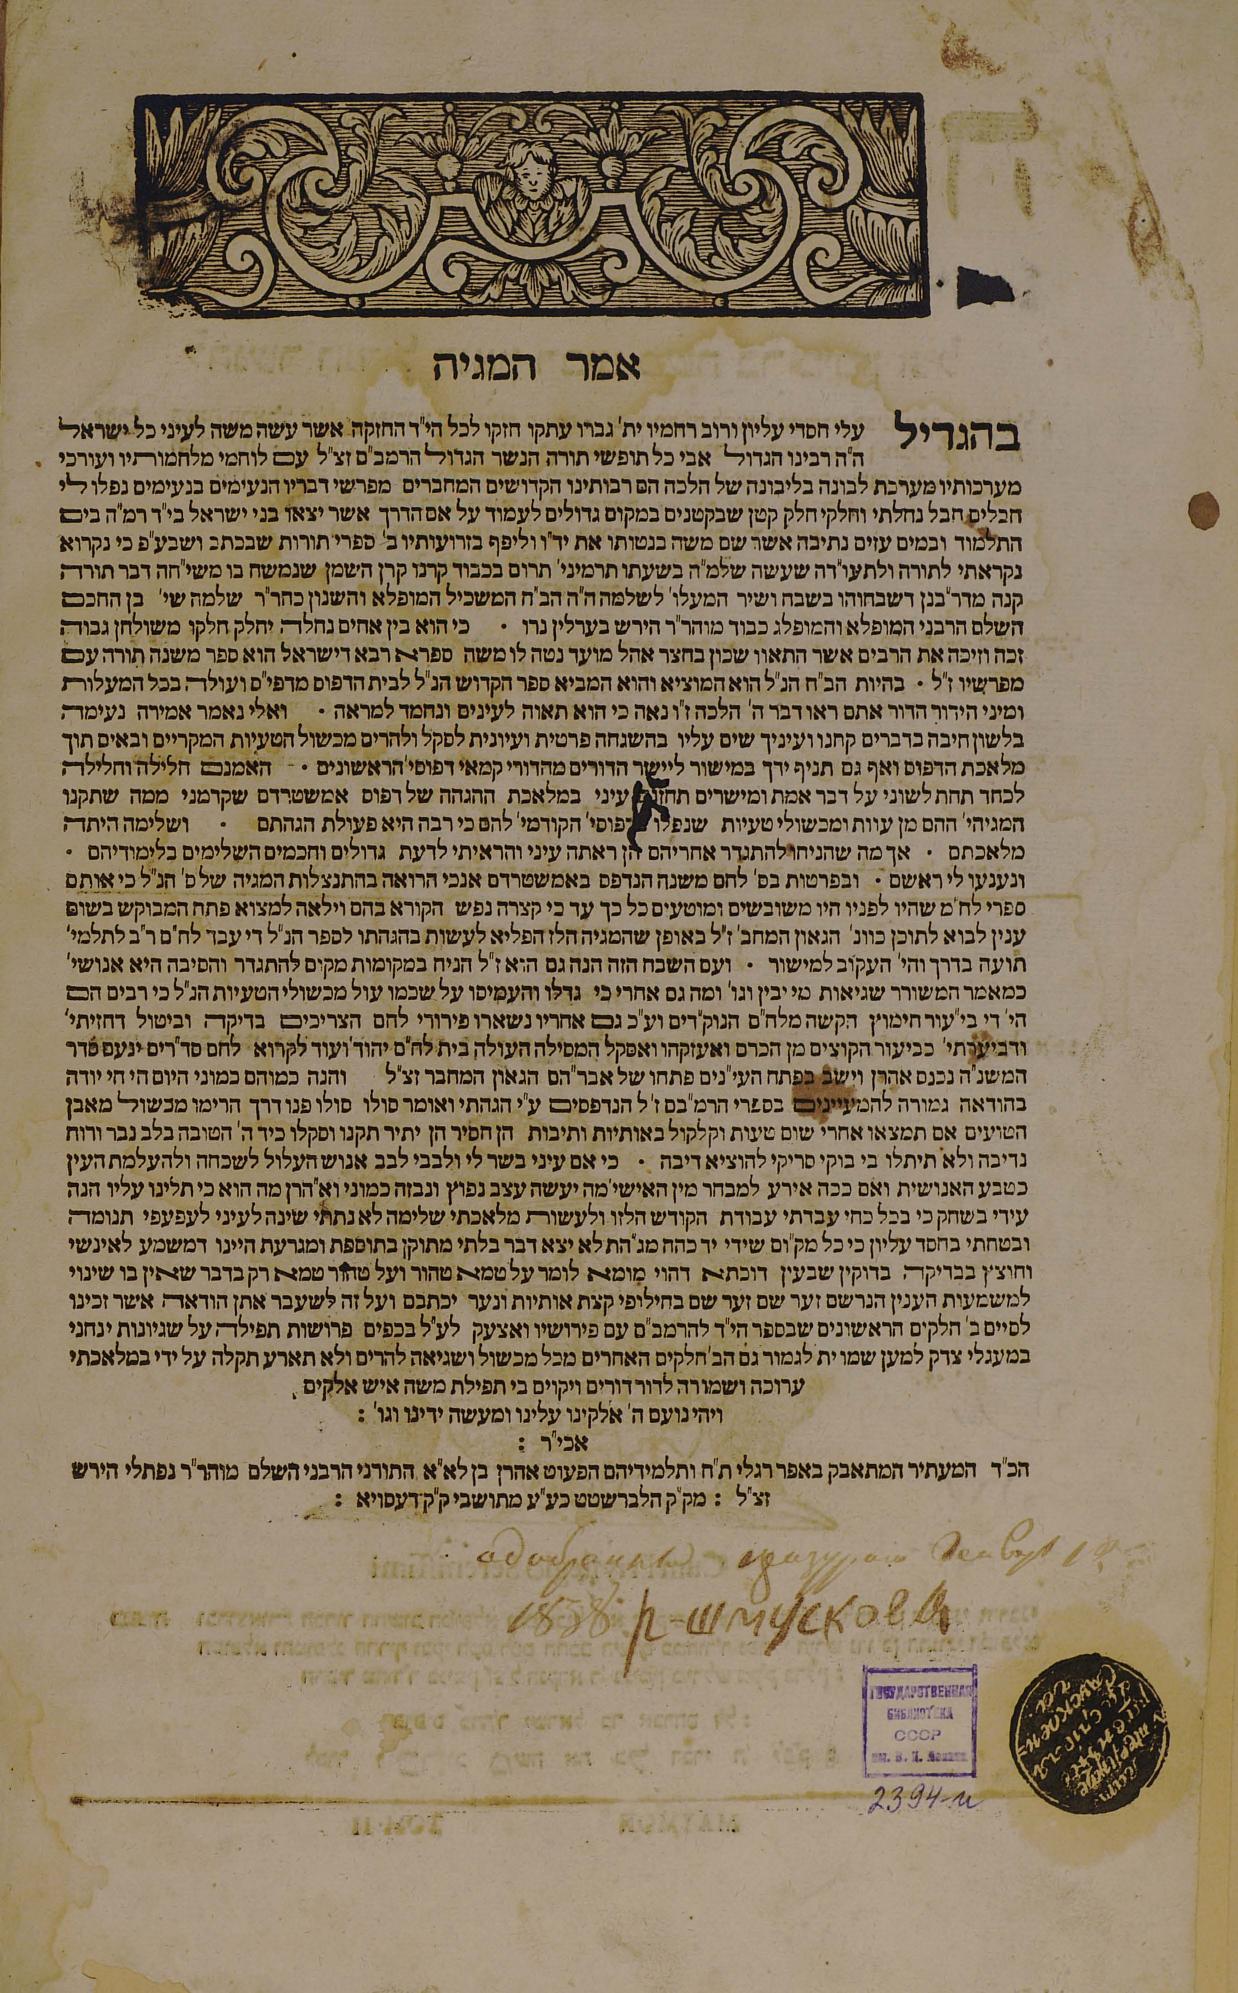 אמר המגיה
בהגדיל עלי חסדי עליון ורוב רחמיו ית' גברו עתקו חזקו לכל הי"ד החזקה אשר עשה משה לעיני כל ישראל
ה"ה רבינו הגדול אבי כל תופשי תורה הנשר הגדול הרמב"ם זצ"ל עם לוחמי מלחמותיו ועורכי
מערכותיו מערכת לבונה בליבונה של הלכה הם רבותינו הקדושים המחברים מפרשי דבריו הנעימים בנעימים נפלו לי
חבלים חבל נחלתי וחלקי חלק קטן שבקטנים במקום גדולים לעמוד על אם הדרך אשר יצאו בני ישראל בי"ד רמ"ה בים
התלמוד ובמים עזים נתיבה אשר שם משה בנטותו את יד"ו וליפף בזרועותיו ב' ספרי תורות שבכתב ושבע"פ כי נקרוא
נקראתי לתורה ולתעו"דה שעשה שלמ"ה בשעתו תרמיני' תרום בכבוד קרנו קרן השמן שנמשח בו משי"חה דבר תורה
קנה מדר"בנן דשבחוהו בשבח ושיר המעלו' לשלמה ה"ה הב"ח המשכיל המופלא והשנון כהר"ר שלמה שי' בן החכם
השלם הרבני המופלא והמופלג כבוד מוהר"ר הירש בערלין נרו · כי הוא בין אחים נחלה יחלק חלקו משולחן גבוה
זכה וזיכה את הרבים אשר התאוו שכון בחצר אהל מועד נטה לו משה ספרא רבא דישראל הוא ספר משנה תורה עם
מפרשיו ז"ל · בהיות הב"ח הנ"ל הוא המוציא והוא המביא ספר הקדוש הנ"ל לבית הדפוס מדפי"ס ועולה בכל המעלות
ומיני הידור הדור אתם ראו דבר ה' הלכה ז"ו נאה כי הוא תאוה לעינים ונחמד למראה · ואלי נאמר אמירה נעימה
בלשון חיבה בדברים קחנו ועיניך שים עליו בהשגחה פרטית ועיונית לסקל ולהרים מכשול הטעיות המקריים ובאים תוך
מלאכת הדפוס ואף גם תניף ידך במישור ליישר הדורים מהדורי קמאי דפוסי' הראשונים · האמנם חלילה וחלילה
לכחד תחת לשוני על דבר אמת ומישרים עיני במלאכת ההגהה של דפוס אמשטרדם שקדמני ממה שתקנו
המגיהי' ההם מן עוות ומכשולי טעיות שנפלו הקודמי' להם כי רבה היא פעולת הגהתם · ושלימה היתה
מלאכתם · אך מה שהניחו להתגדר אחריהם הן ראתה עיני והראיתי לדעת גדולים וחכמים השלימים בלימודיהם ·
ונענעו לי ראשם · ובפרטות בס' לחם משנה הנדפס באמשטרדם אנכי הרואה בהתנצלות המגיה של ס' הנ"ל כי אותם
ספרי לח"מ שהיו לפניו היו משובשים ומוטעים כל כך עד כי קצרה נפש הקורא בהם וילאה למצוא פתח המבוקש בשום
ענין לבוא לתוכן כוונ' הגאון המחב' ז"ל באופן שהמגיה הלז הפליא לעשות בהגהתו לספר הנ"ל די עבד לח"ם ר"ב לתלמי'
תועה בדרך והי' העקוב למישור · ועם השבח הזה הנה גם הוא ז"ל הניח במקומות מקום להתגדר והסיבה היא אנושי'
כמאמר המשורר שגיאות מי יבין וגו' ומה גם אחרי כי גדלו והעמיסו על שכמו עול מכשולי הטעיות הנ"ל כי רבים הם
הי' די בי"עור חימוץ הקשה מלח"ם הנוק"דים וע"כ גם אחריו נשארו פירורי לחם הצריכים בדיקה וביטול דחזיתי'
ודביערתי' כביעור הקוצים מן הכרם ואעזקהו ואסקל המסילה העולה בית לח"ם יהוד' ועוד לקרוא לחם סד"רים ינעם סדר
המשנ"ה נכנס אהרן וישב בפתח העי"נים פתחו של אבר"הם הגאון המחבר זצ"ל והנה כמוהם כמוני היום הי חי יודה
בהודאה גמורה להמעיינים בספרי הרמ"בם ז"ל הנדפסים ע"י הגהתי ואומר סולו סולו פנו דרך הרימו מכשול מאבן
הטועים אם תמצאו אחרי שום טעות וקלקול באותיות ותיבות הן חסיר הן יתיר תקנו וסקלו כיד ה' הטובה בלב נבר ורוח
נדיבה ולא תיתלו בי בוקי סריקי להוציא דיבה · כי אם עיני בשר לי ולבבי לבב אנוש העלול לשכחה ולהעלמת העין
כטבע האנושית ואם ככה אירע למבחר מין האישי' מה יעשה עצב נפוץ ונבזה כמוני וא"הרן מה הוא כי תלינו עליו הנה
עידי בשחק כי בכל כחי עבדתי עבודת הקודש הלזו ולעשות מלאכתי שלימה לא נתתי שינה לעיני לעפעפי תנומה
ובטחתי בחסד עליון כי כל מק"ום שידי יד כהה מג"הת לא יצא דבר בלתי מתוקן בתוספת ומגרעת היינו דמשמע לאינשי
וחוצץ בבריקה בדוקין שבעין דוכתא דהוי מומא לומר על טמא טהור ועל טהור טמא רק בדבר שאין בו שינוי
למשמעות הענין הנרשם זער שם זער שם בחילופי קצת אותיות ונער יכתבם ועל זה לשעבר אתן הודאה אשר זכינו
לסיים ב' חלקים הראשונים שבספר הי"ד להרמב"ם עם פירושיו ואצעק לע"ל בכפים פרושות תפילה על שגיונות ינחני
במעגלי צדק למען שמו ית' לגמור גם הב' חלקים האחרים מכל מכשול ושגיאה להרים ולא תארע תקלה על ידי במלאכתי
ערוכה ושמורה לדור דורים ויקוים בי תפילת משה איש אלקים
ויהי נועם ה' אלקינו עלינו ומעשה ידינו וגו' :
אכי"ר :
הכ"ד המעתיר המתאבק באפר רגלי ת"ח ותלמידיהם הפעוט אהרן בן לא"א התורני הרבני השלם מוהר"ר נפתלי הירש
זצ"ל : מק"ק הלברשטט כע"ע מתושבי ק"ק דעסויא :
1858
ГОСУДАРСТВЕННАЯ
БИБЛИОТЕКА
СССР
им. В. И. Ленина
2394-и